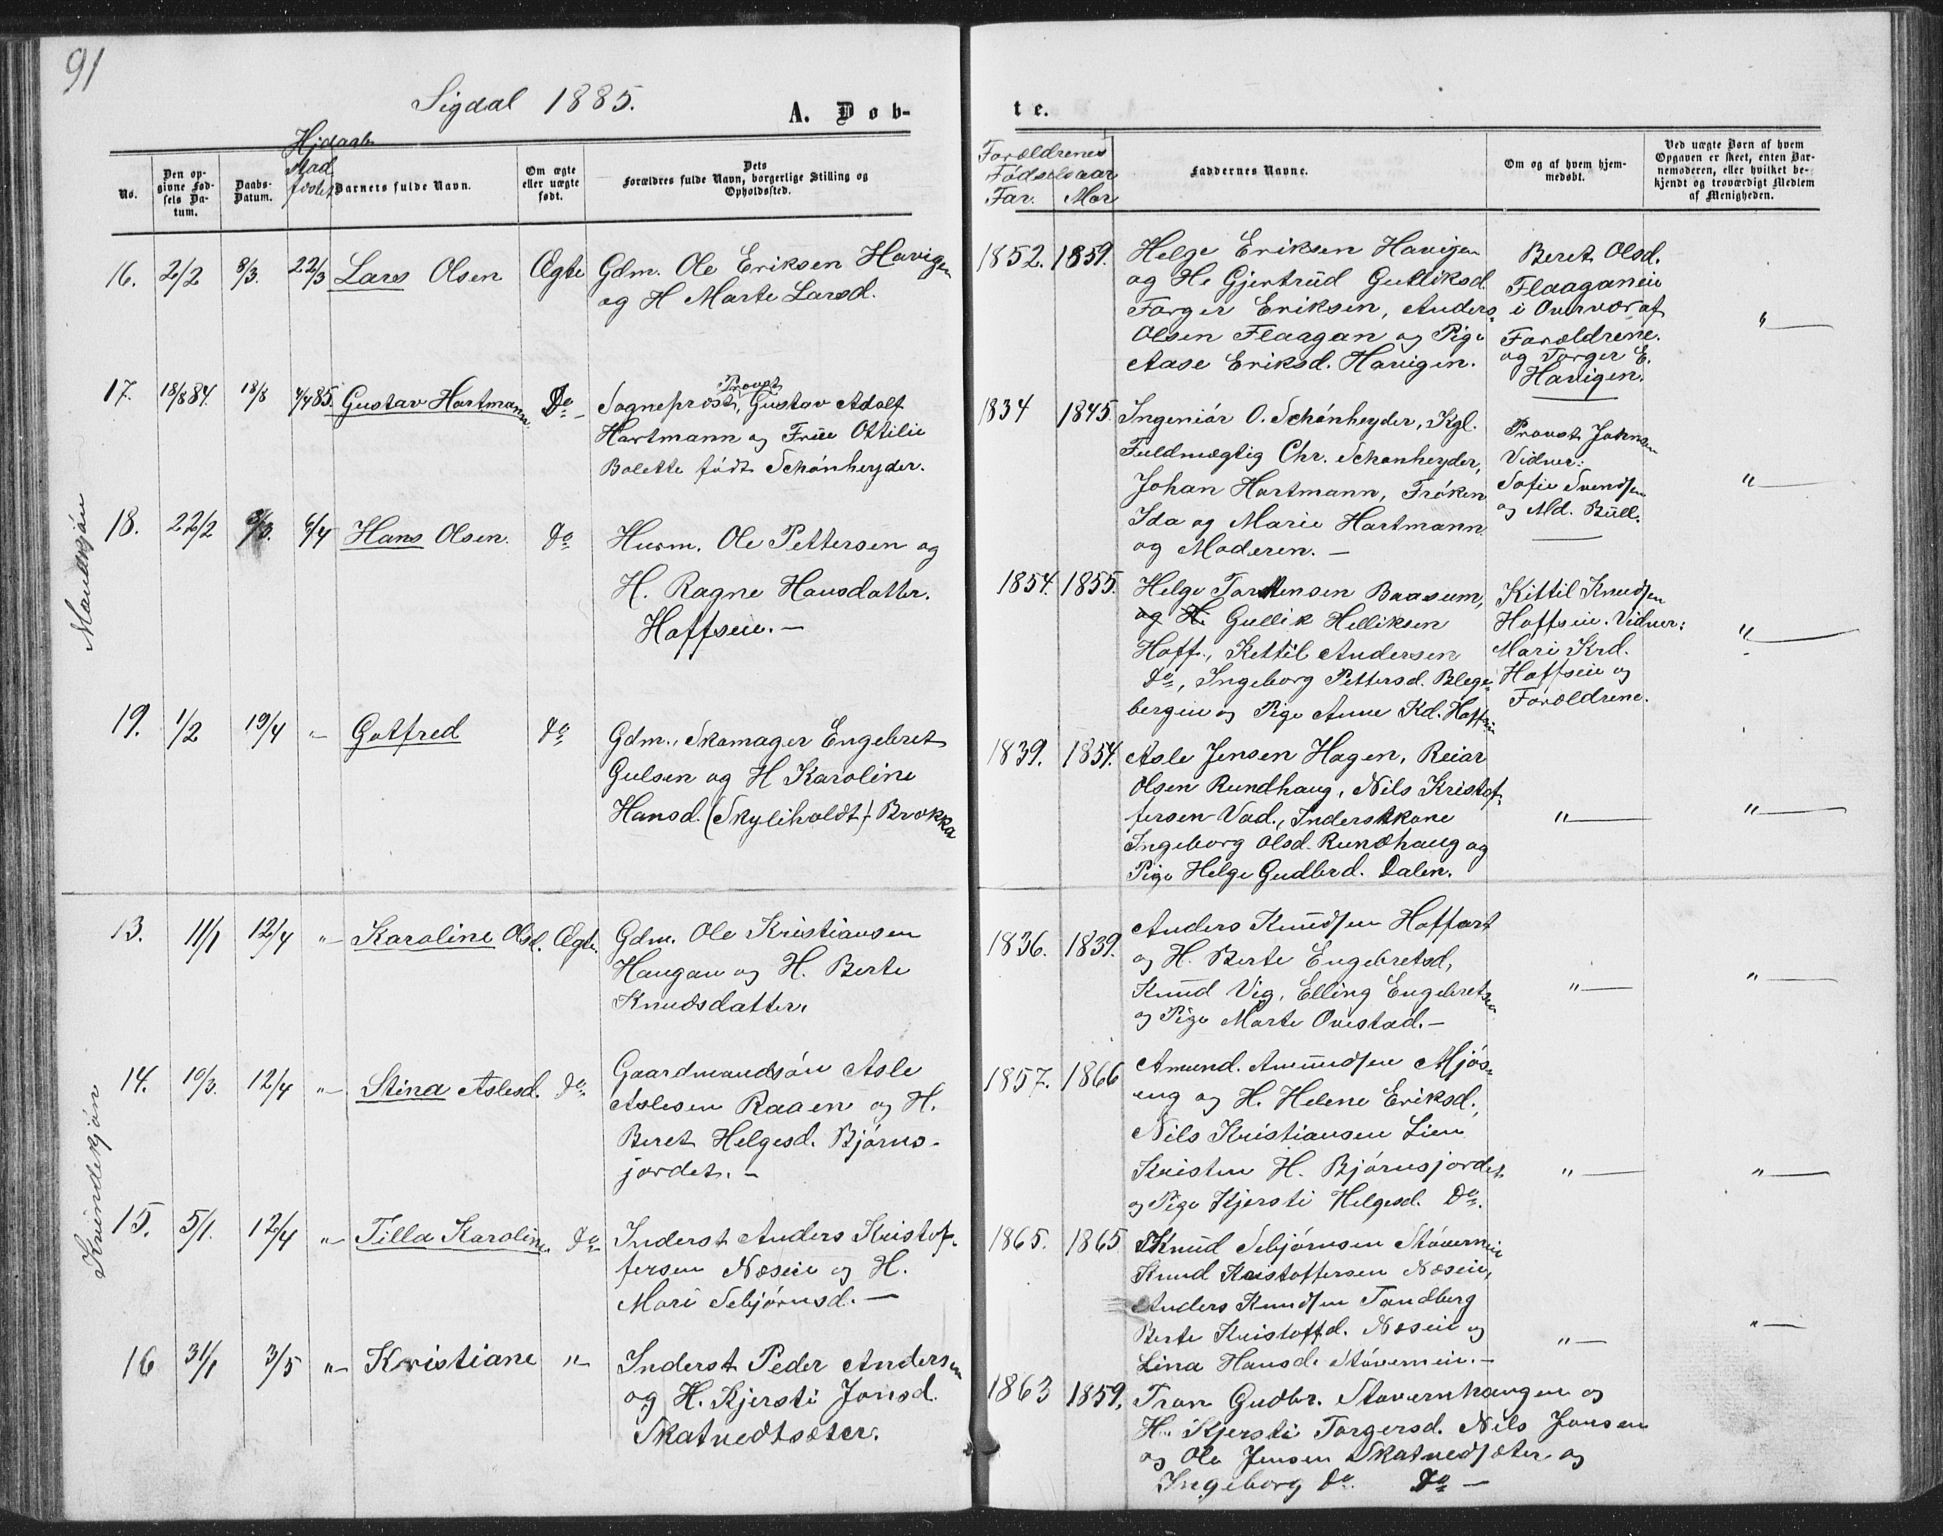 91
Sigdal 1885.
A. Døb-
te.
No.
Den op-
givne Fød-
sels Da-
tum.
Daabs-
Datum.
Hjdøbt
Stad
fæstet
Barnets fulde Navn.
Om ægte
eller uægte
født.
Dets
Forældres fulde Navn, borgerlige Stilling og
Opholdssted.
Forældrenes
Fødselsaar
Far. Mor
Faddernes Navne.
Om og af hvem hjem-
medøbt.
Ved uægte Børn af hvem
Opgaven er skeet, enten Bar-
nemoderen, eller hvilket be-
kjendt og troværdigt Medlem
af Menigheden.
16. 2/2 8/3. 22/3 Lars Olsen Ægte Gdm. Ole Eriksen Havigen
og H Marte Larsd.
1852. 1859. Helge Eriksen Havigen
og H. Gjertrud Gulliksd
Torger Eriksen, Anders
Olsen Flaagan og Pige
Aase Eriksd. Havigen.
Beret Olsd.
Flaaganeie
i Overvær af
Forældrene.
og Torger E.
Havigen.
"
17. 18/8 84. 18/8 4/4 85. Gustav Hartmann. Do Sogneprest, Provst Gustav Adolf
Hartmann og Frue Ottilie
Bolette født Schønheyder.
1834 1845. Ingeniør O. Schønheyder, Kgl.
Fuldmægtig Chr. Schønheyder,
Johan Hartmann, Frøken
Ida og Marie Hartmann
og Moderen. —
Provst Johnsen
Vidner:
Sofie Svendsen
og Md. Bull.
"
18. 22/2 8/3. 6/4 Hans Olsen. do Husm. Ole Pettersen og
H. Ragne Hansdatter.
Hoffseie. —
1854. 1855. Helge Torstensen Braasum,
og H. Gullik Helliksen
Hoff, Kettil Andersen
do, Ingeborg Pettersd. Blege-
bergeie og Pige Anne Kd. Hoffeie
Kittil Knudsen
Hoffseie. Vidner:
Mari Krd.
Hoffseie og
Forældrene.
"
19. 1/2 19/4 " Gotfred do Gdm., Skomager Engebret
Gulsen og H Karoline
Hansd. (Skyliholdt) Brokka
1839. 1854. Asle Jensen Hagen, Reiar
Olsen Rundhaug, Nils Kristof-
fersen Vad., Inderstkone
Ingeborg Olsd. Rundhaug og
Pige Helge Gudbrd. Dalen.
"
"
13. 11/1 12/4 " Karoline Olsd. Ægte. Gdm. Ole Kristiansen
Haugan og H. Berte
Knudsdatter.
1836. 1839. Anders Knudsen Hoffart
og H. Berte Engebretsd,
Knud Vig, Elling Engebretsen
og Pige Marte Ovestad. —
"
"
14. 10/3. 12/4 " Stina Aslesd. do. Gaardmandsøn Asle
Aslesen Raaen og H.
Beret Helgesd. Bjørns-
jordet. —
1857. 1866 Amund. Amundsen Mjøs-
eng og H. Helene Eriksd.,
Nils Kristiansen Lien
Kristen H. Bjørnsjordet
og Pige Kjersti Helgesd. do.
"
"
15. 5/1. 12/4 " Tilla Karoline do Inderst Anders Kristof-
fersen Næseie og H.
Mari Sebjørnsd. —
1865. 1865 Knud Sebjørnsen Støverneie
Knud Kristoffersen Næseie,
Anders Knudsen Tandberg
Berte Kristoffd. Næseie og
Lina Hansd. Støverneie. —
"
"
16 31/1 3/5 " Kristiane " Inderst Peder Andersen
og H. Kjersti Jonsd.
Skatvedtsæter.
1863 1859. Tron Gudbr. Stovernhaugen og
H. Kjersti Torgersd. Nils Jonsen
og Ole Jensen Skatvedsæter og
Ingeborg do. do —